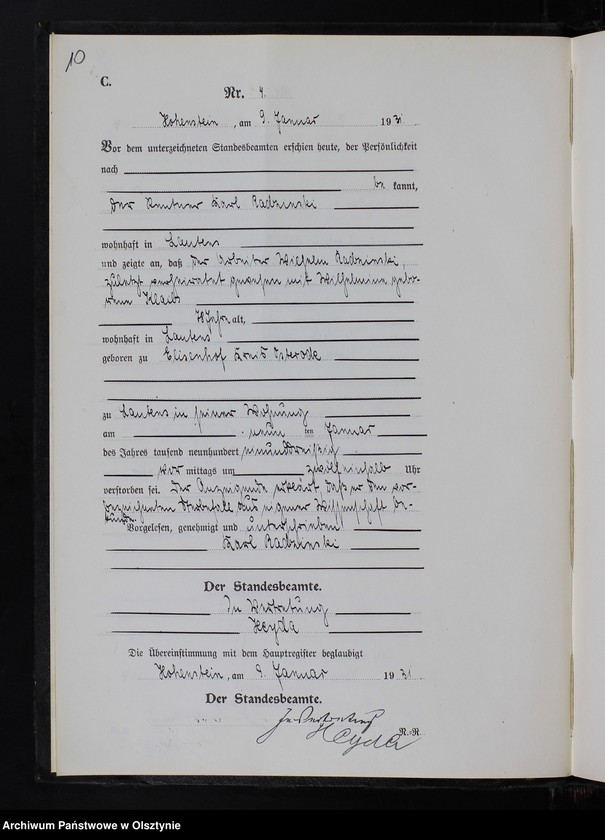 10
C.
Nr. 4.
Hohenstein, am 9. Januar 1931
Vor dem unterzeichneten Standesbeamten erschien heute, der Persönlichkeit
nach
be kannt,
der Rentner Karl Radzinski
wohnhaft in Lautens
und zeigte an, daß der Arbeiter Wilhelm Radzinski,
zuletzt verheiratet gewesen mit Wilhelmine gebo-
rene
alt,
wohnhaft in Lautens
geboren zu Elisenhof Kreis Osterode
zu Lautens in seiner Wohnung
am neun ten Januar
des Jahres tausend neunhundert einunddreißig
vor mittags um zwölfeinhalb Uhr
verstorben sei. Der Anzeigende erklärt, daß er von vor-
bezeichnetem Sterbefalle aus eigener Wissenschaft be-
Vorgelesen, genehmigt und unterschrieben
Karl Radzinski
Der Standesbeamte.
In Vertretung
Heyda
Die Übereinstimmung mit dem Hauptregister beglaubigt
Hohenstein, am 9. Januar 1931
Der Standesbeamte.
In Vertretung
Heyda
R.-R.
Archiwum Państwowe w Olsztynie